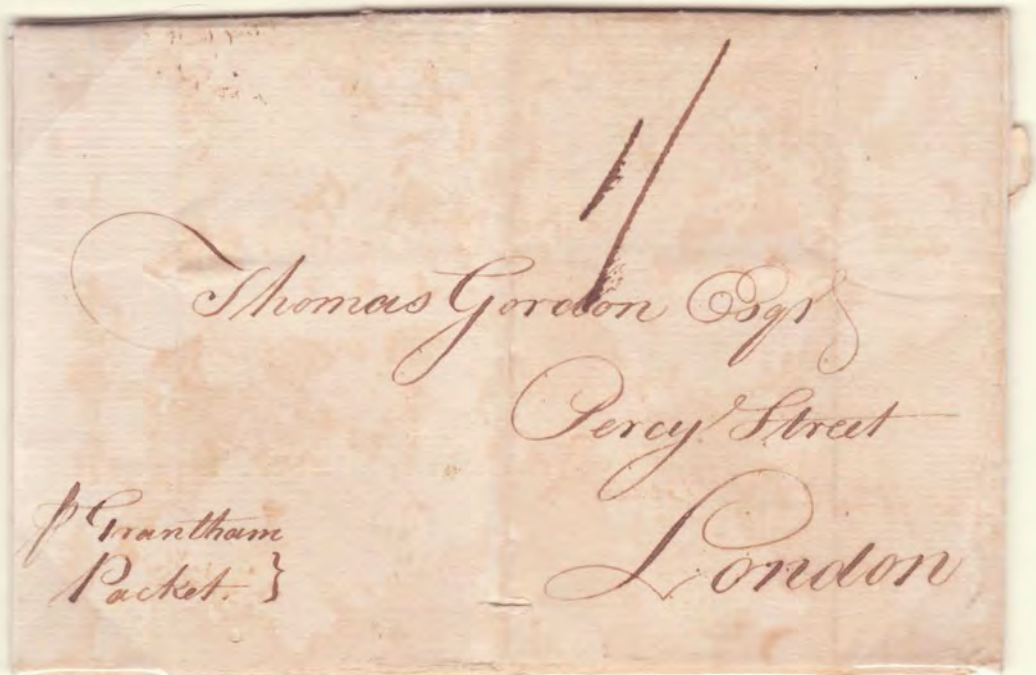 1/
Thomas Gordon Esqr
Percy Street
London
p Grantham
Packet. }